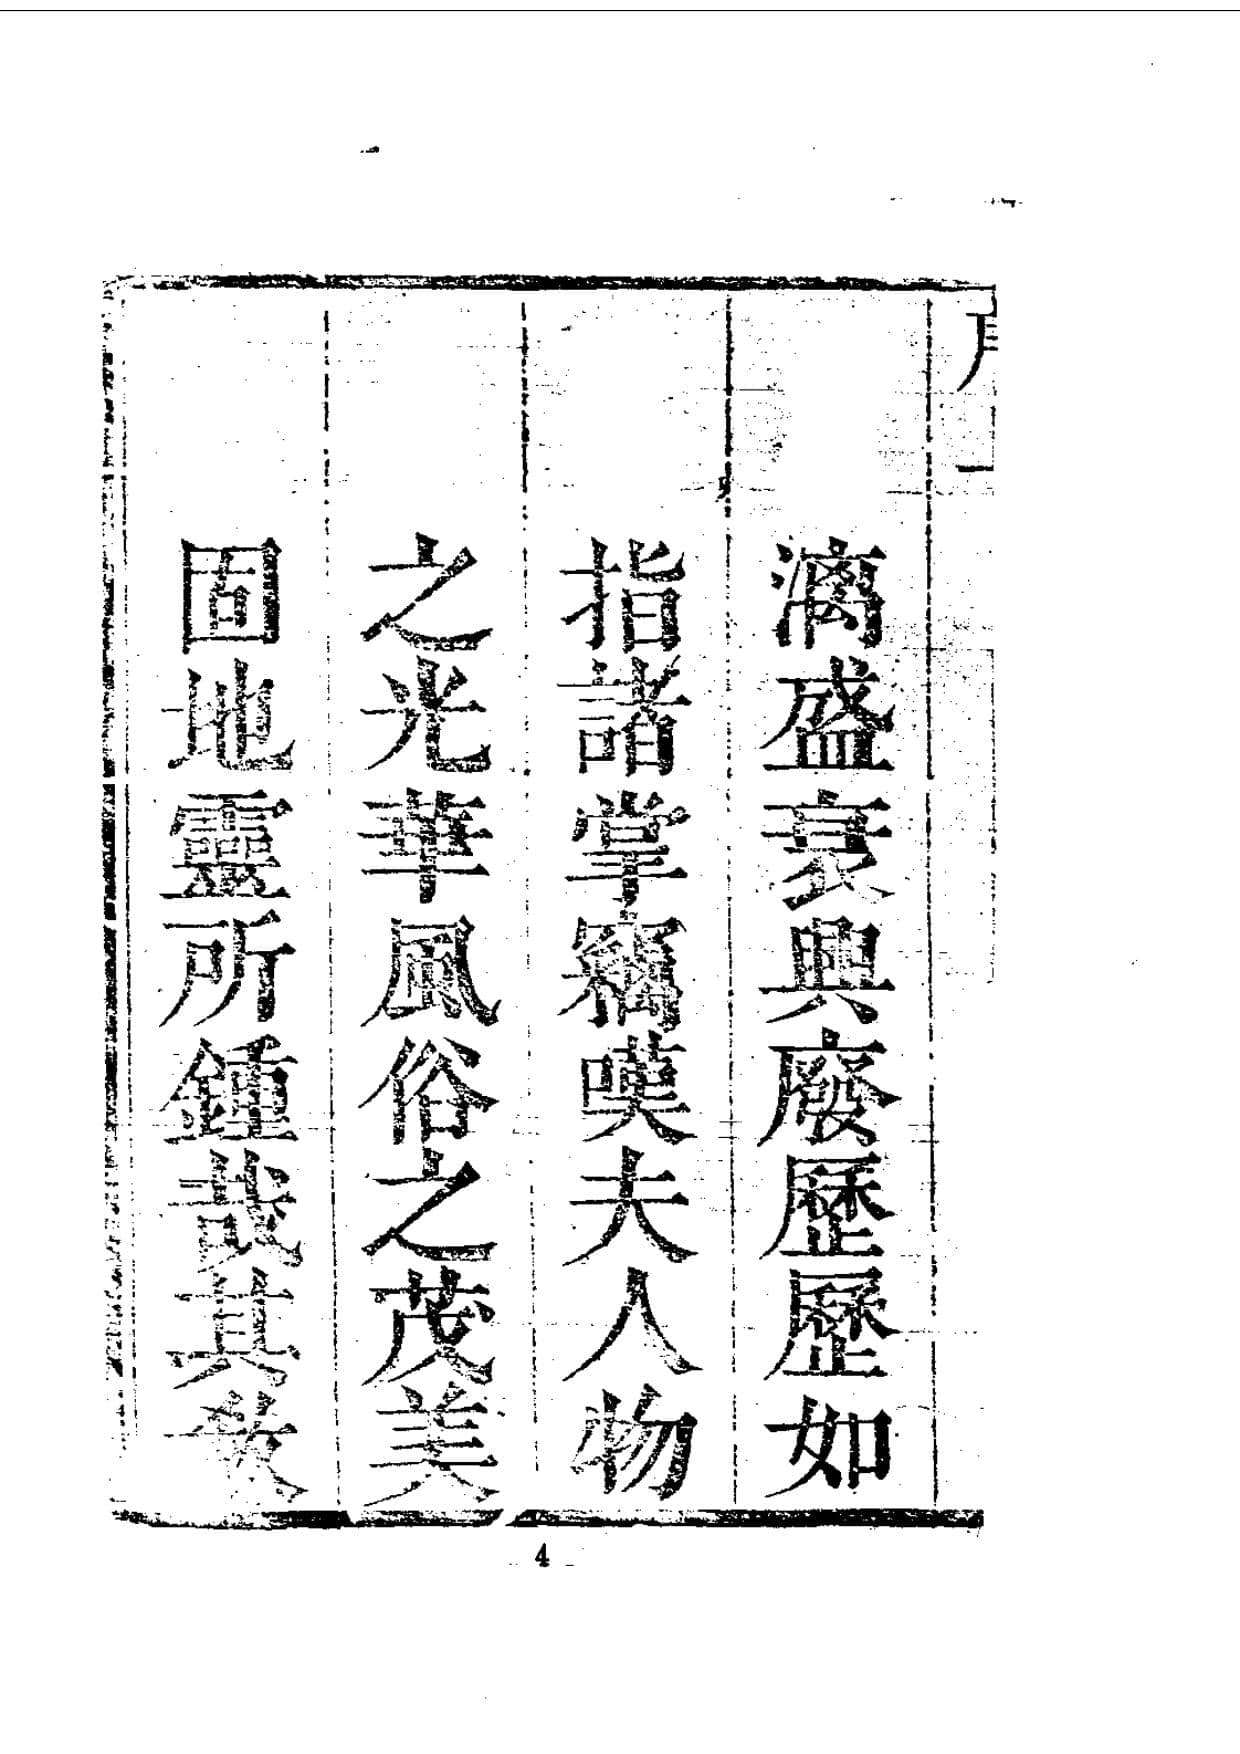 漓盛衰興廢歷歷如
指諸掌竊嘆夫人物
之光華風俗之茂美
固地靈所鍾哉其
4